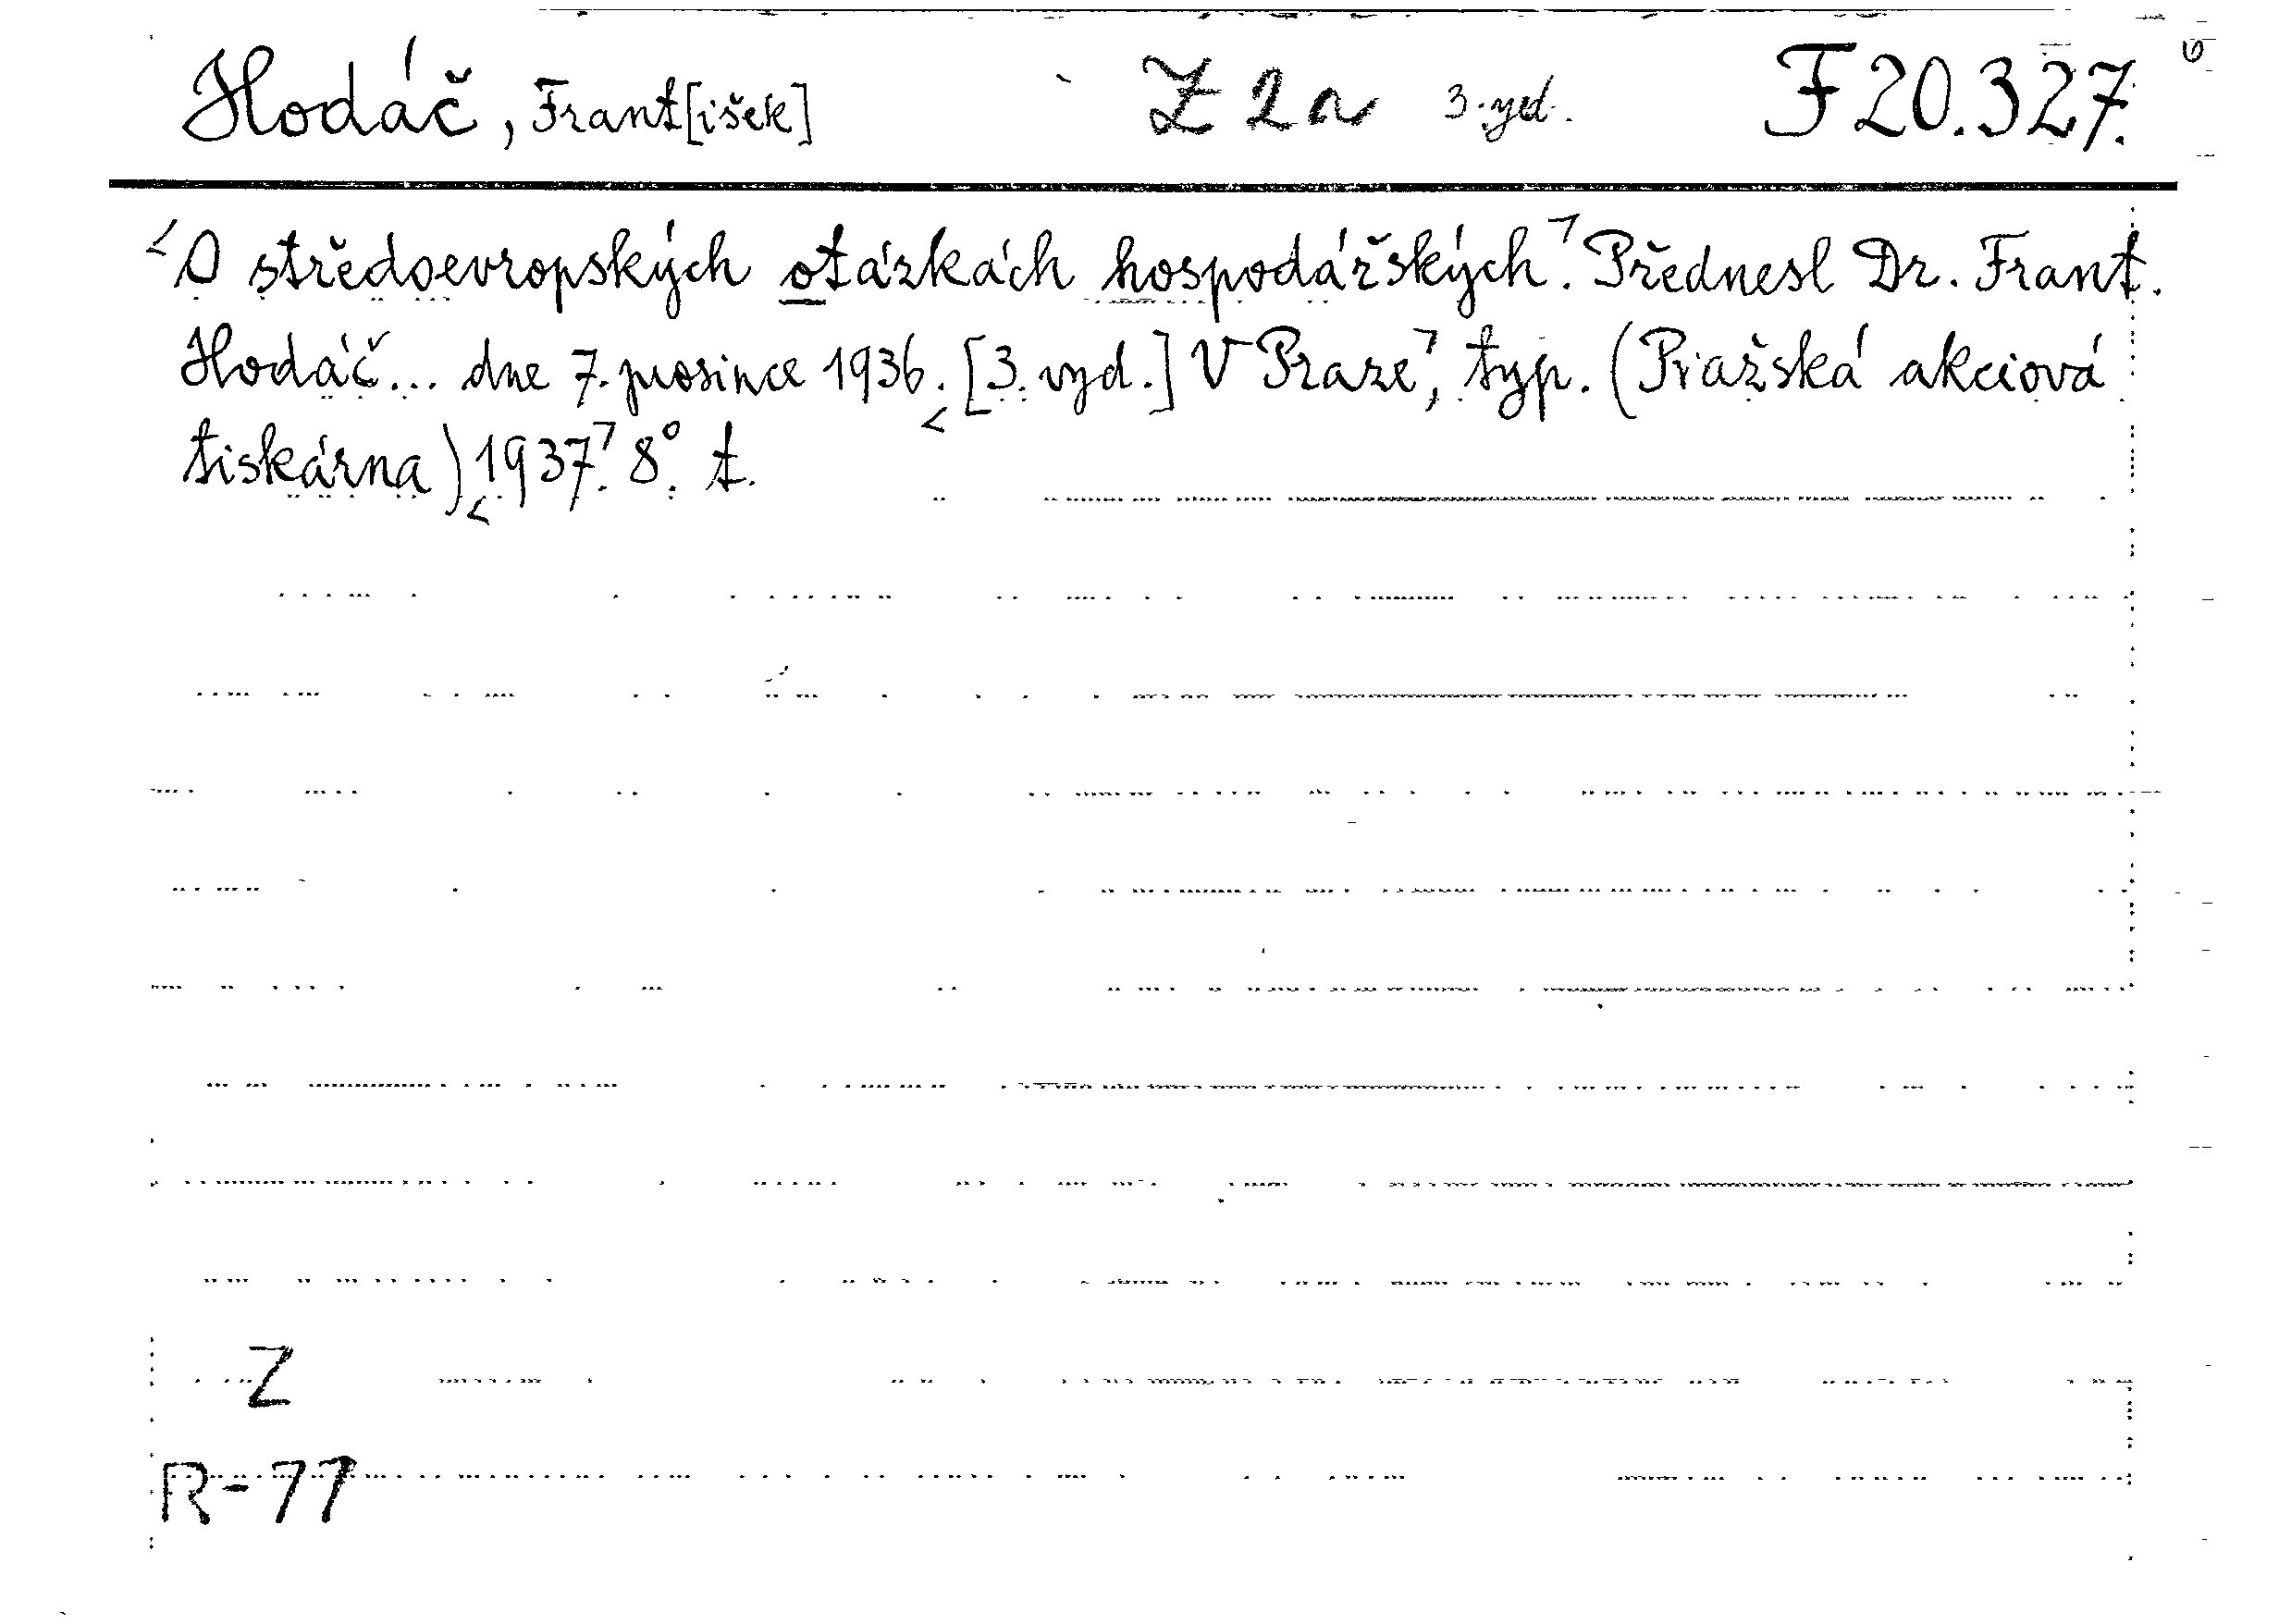 Hodáč, Frant[išek] Z 2a 3. vyd. F 20.327.
O středoevropských otázkách hospodářských. Přednesl Dr. Frant.
Hodáč... dne 7. prosince 1936. [3. vyd.] V Praze, typ. (Pražská akciová
tiskárna) 1937. 8°. t.
Z
R-77